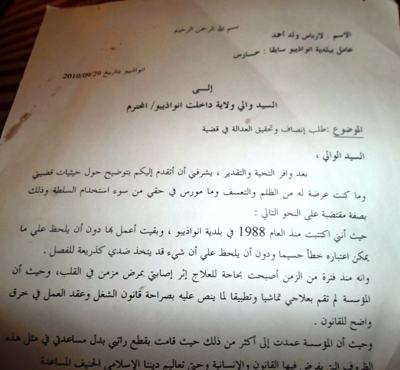 بسم الله الرحمن الرحيم
الاسم : لارباس ولد أحمد
عامل ببلدية انواذيبو سابقا : حارس
انواذيبو بتاريخ 2010/09/29
إلى
السيد والي ولاية داخلت انواذيبو/ المحترم
الموضوع :طلب إنصاف وتحقيق العدالة في قضية
السيد الوالي ،
بعد وافر التحية والتقدير ، يشرفني أن أتقدم إليكم بتوضيح حول حيثيات قضيتي
وما كنت عرضة له من الظلم والتعسف وما مورس في حقي من سوء استخدام السلطة وذلك
بصفة مقتضبة على النحو التالي :
حيث أنني اكتتبت منذ العام 1988 في بلدية انواذيبو ، وبقيت أعمل بها دون أن يلحظ علي ما
يمكن اعتباره خطأ جسيما ودون أن يلحظ علي أن شيء قد يتخذ ضدي كذريعة للفصل .
وانه منذ فترة من الزمن أصبحت بحاجة للعلاج إثر إصابتي بمرض مزمن في القلب، وحيث أن
المؤسسة لم تقم بعلاجي تماشيا وتطبيقا لما ينص عليه بصراحة قانون الشغل وعقد العمل في خرق
واضح للقانون .
وحيث أن المؤسسة عمدت إلى أكثر من ذلك حيث قامت بقطع راتبي بدل مساعدتي في مثل هذه
الظروف التي يفرض فيها القانون والإنسانية وحتى تعاليم ديننا الإسلامي الحنيف المساعدة